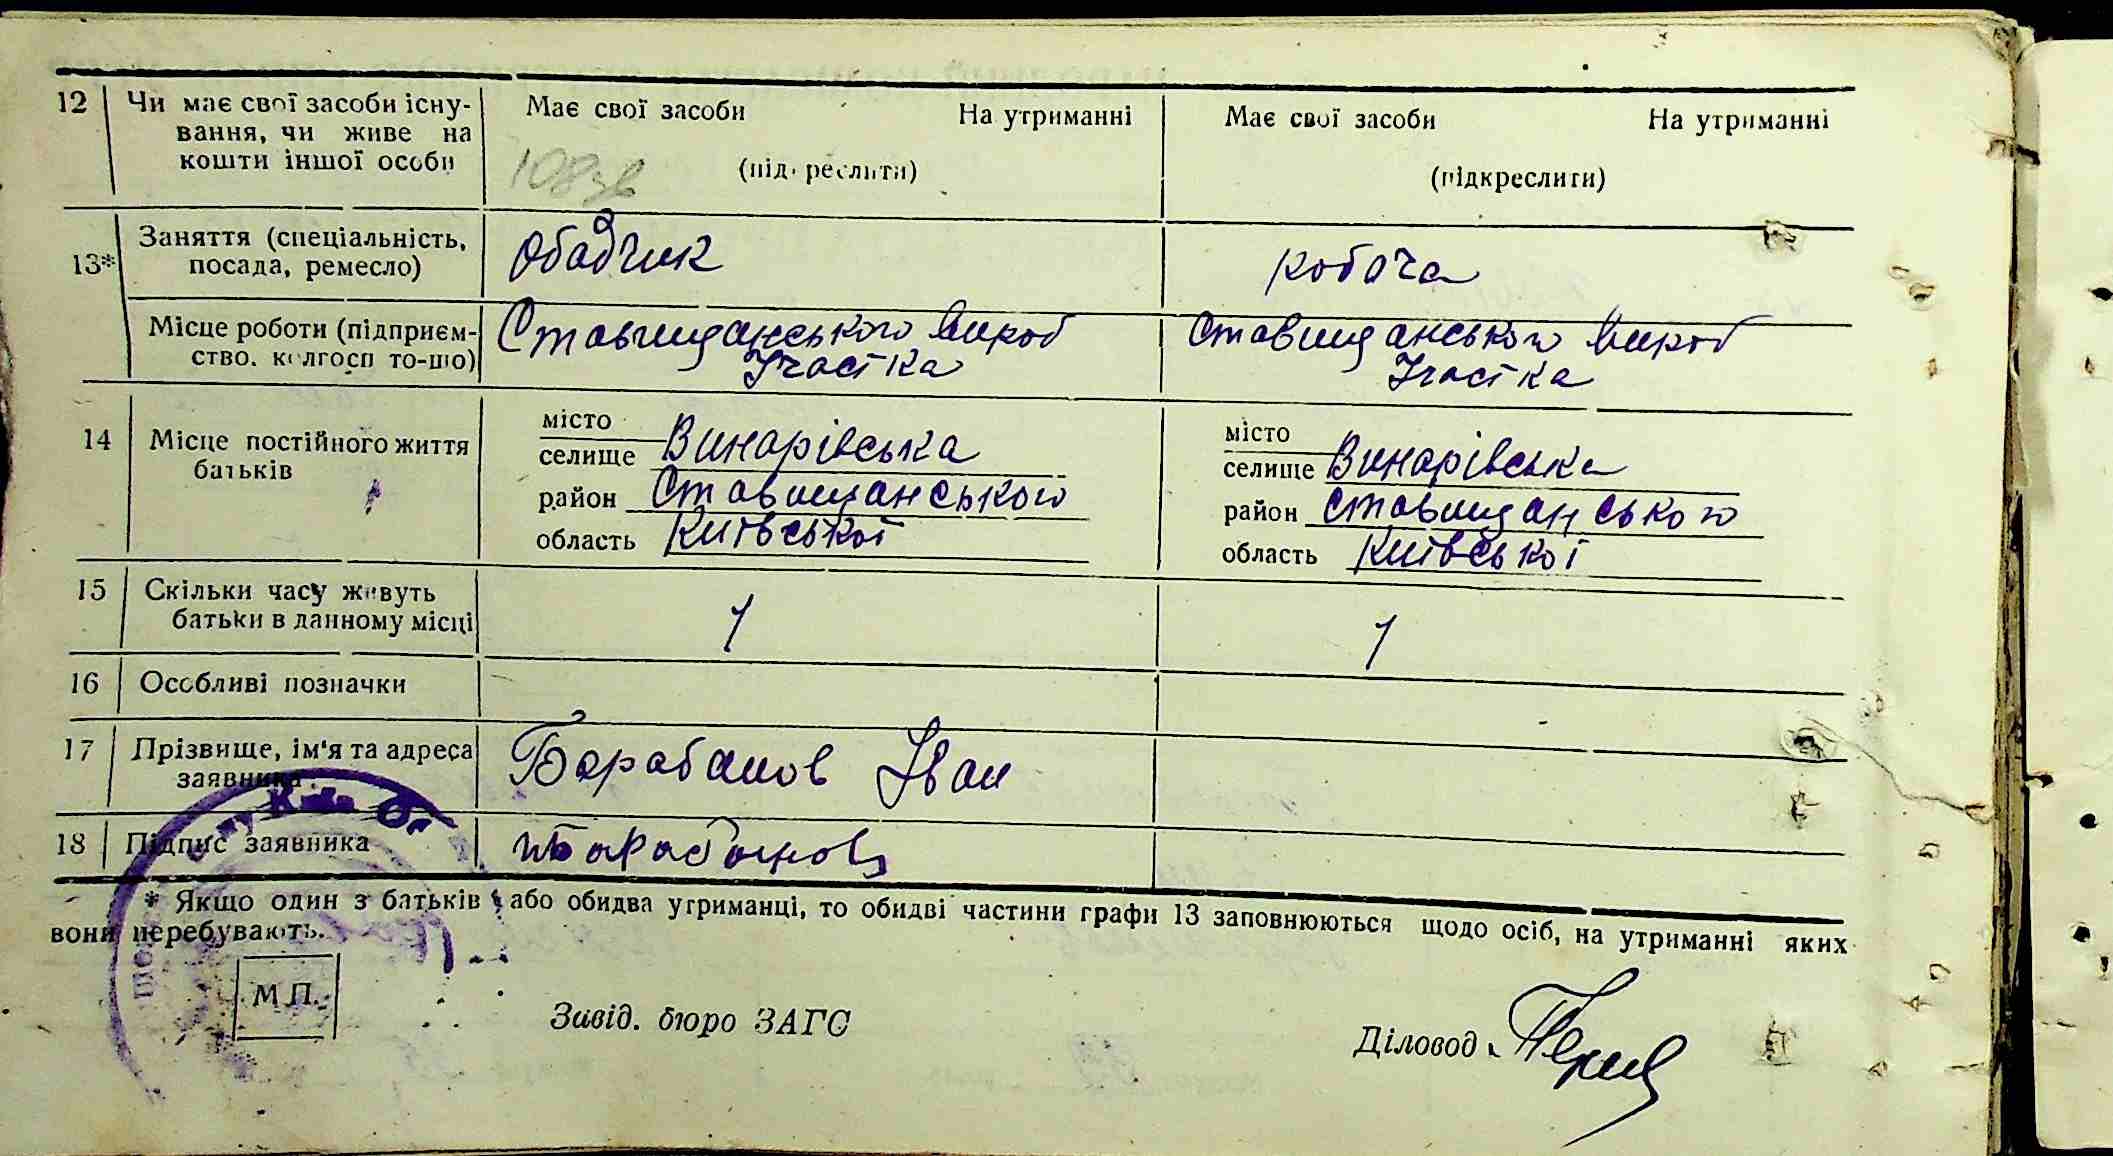 12 Чи має свої засоби існу-
вання, чи живе на
кошти іншої особи
Має свої засоби На утриманні
(підкреслити)
Має свої засоби На утриманні
(підкреслити)
13* Заняття (спеціальність,
посада, ремесло)
Обадчик
робоча
Місце роботи (підприєм-
ство, колгосп то-що)
Ставищанського Вироб
Участка
Ставищанського Вироб
Участка
14 Місце постійного життя
батьків
місто
селище Винарівська
район Ставищанського
область Київської
місто
селище Винарівська
район Ставищанського
область Київської
15 Скільки часу живуть
батьки в данному місці
1
1
16 Особливі позначки
17 Прізвище, ім'я та адреса
заявника
Барабанов Іван
18 Підпис заявника
Барабанов
* Якщо один з батьків або обидва утриманці, то обидві частини графи 13 заповнюються щодо осіб, на утриманні яких
вони перебувають.
М.П.
Завід. бюро ЗАГС
Діловод